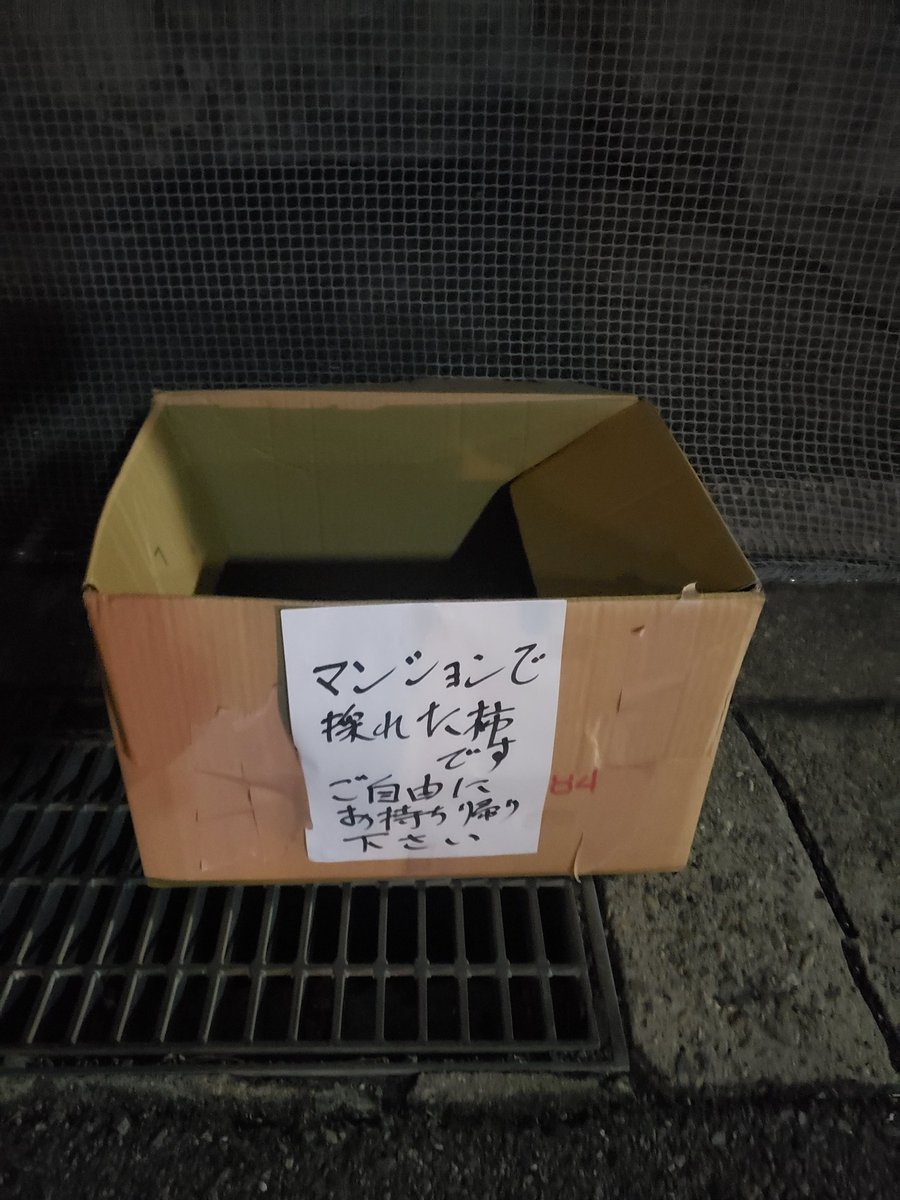 マンションで
採れた柿
です
ご自由に
お持ち帰り
下さい